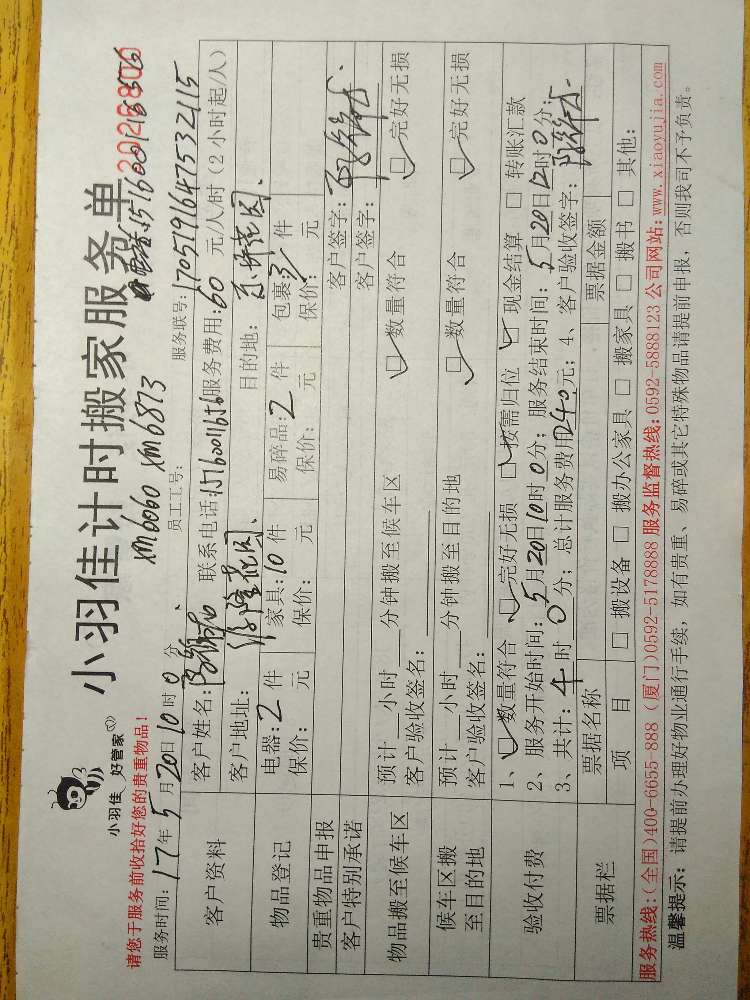 小羽佳 好管家
小羽佳计时搬家服务单
2026800
xm6060 xm6873
请您于服务前收拾好您的贵重物品!
服务时间: 17年5月20日10时0分 员工工号: 服务联号: 1705191647532115
客户资料
客户姓名: 联系电话:15160011656 服务费用:60元/人/时(2小时起/人)
客户地址: 花园. 目的地: 花园.
物品登记
电器:2件 家具:10件 易碎品:2件 包裹:3件
保价: 元 保价: 元 保价: 元 保价: 元
贵重物品申报
客户签字:
客户特别承诺
客户签字:
物品搬至候车区
预计 小时 分钟搬至候车区 数量符合 □ 完好无损
客户验收签名:
候车区搬至目的地
预计 小时 分钟搬至目的地 □ 数量符合 □ 完好无损
客户验收签名:
验收付费
1、□数量符合 □完好无损 □按需归位 □现金结算 □ 转账汇款
2、服务开始时间:5月20日10时0分; 服务结束时间:5月20日12时0分;
3、共计:4时0分; 总计服务费用240元; 4、客户验收签字:
票据栏
票据名称 票据金额
项 目 □ 搬设备 □ 搬办公家具 □ 搬家具 □ 搬书 □ 其他:
服务热线:(全国)400-6655-888 (厦门)0592-5178888 服务监督热线:0592-5888123 公司网站:www.xiaoyujia.com
温馨提示: 请提前办理好物业通行手续, 如有贵重、易碎或其它特殊物品请提前申报, 否则我司不予负责。